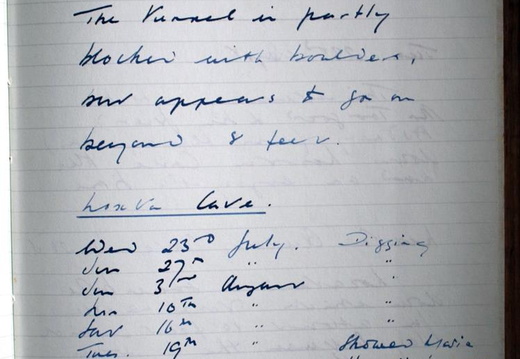 The Tunnel is partly
blocked with boulders,
but appears to go on
beyond 8 feet.
Cave.
Wed 23rd July. Digging
Sun 27th " "
Sun 3rd August "
Sun 10th " "
Sat 16th " "
Tues. 19th " Showed Maria